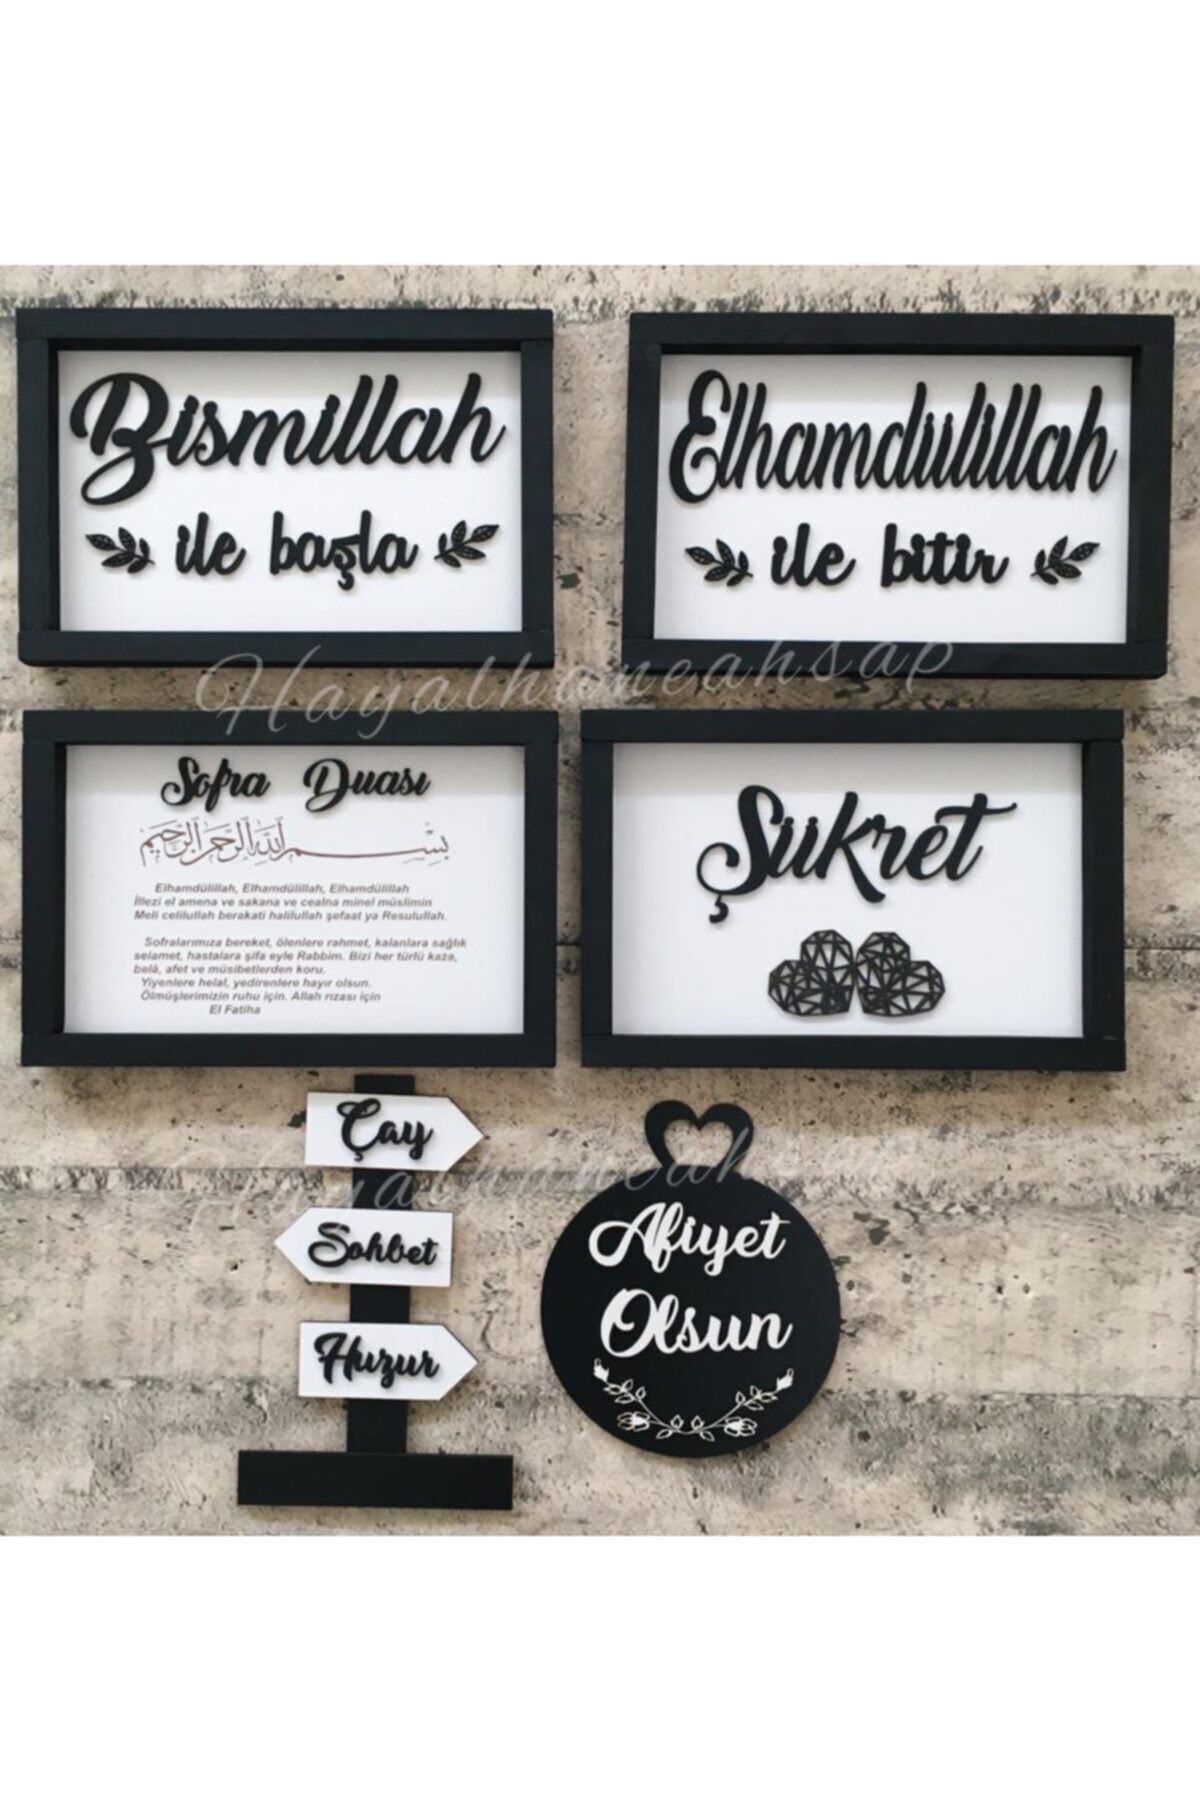 Bismillah
ile başla
Elhamdülillah
ile bitir
Hayalhaneahsap
Sofra Duası
بسم الله الرحمن الرحيم
Elhamdülillah, Elhamdülillah, Elhamdülillah
İllezi el amena ve sakana ve cealna minel müslimin
Meli celilullah berakati halilullah şefaat ya Resulullah.
Sofralarımıza bereket, ölenlere rahmet, kalanlara sağlık
selamet, hastalara şifa eyle Rabbim. Bizi her türlü kaza,
belâ, afet ve müsibetlerden koru.
Yiyenlere helal, yedirenlere hayır olsun.
Ölmüşlerimizin ruhu için. Allah rızası için
El Fatiha
Şükret
Çay
Sohbet
Huzur
Hayalhaneahsap
Afiyet
Olsun